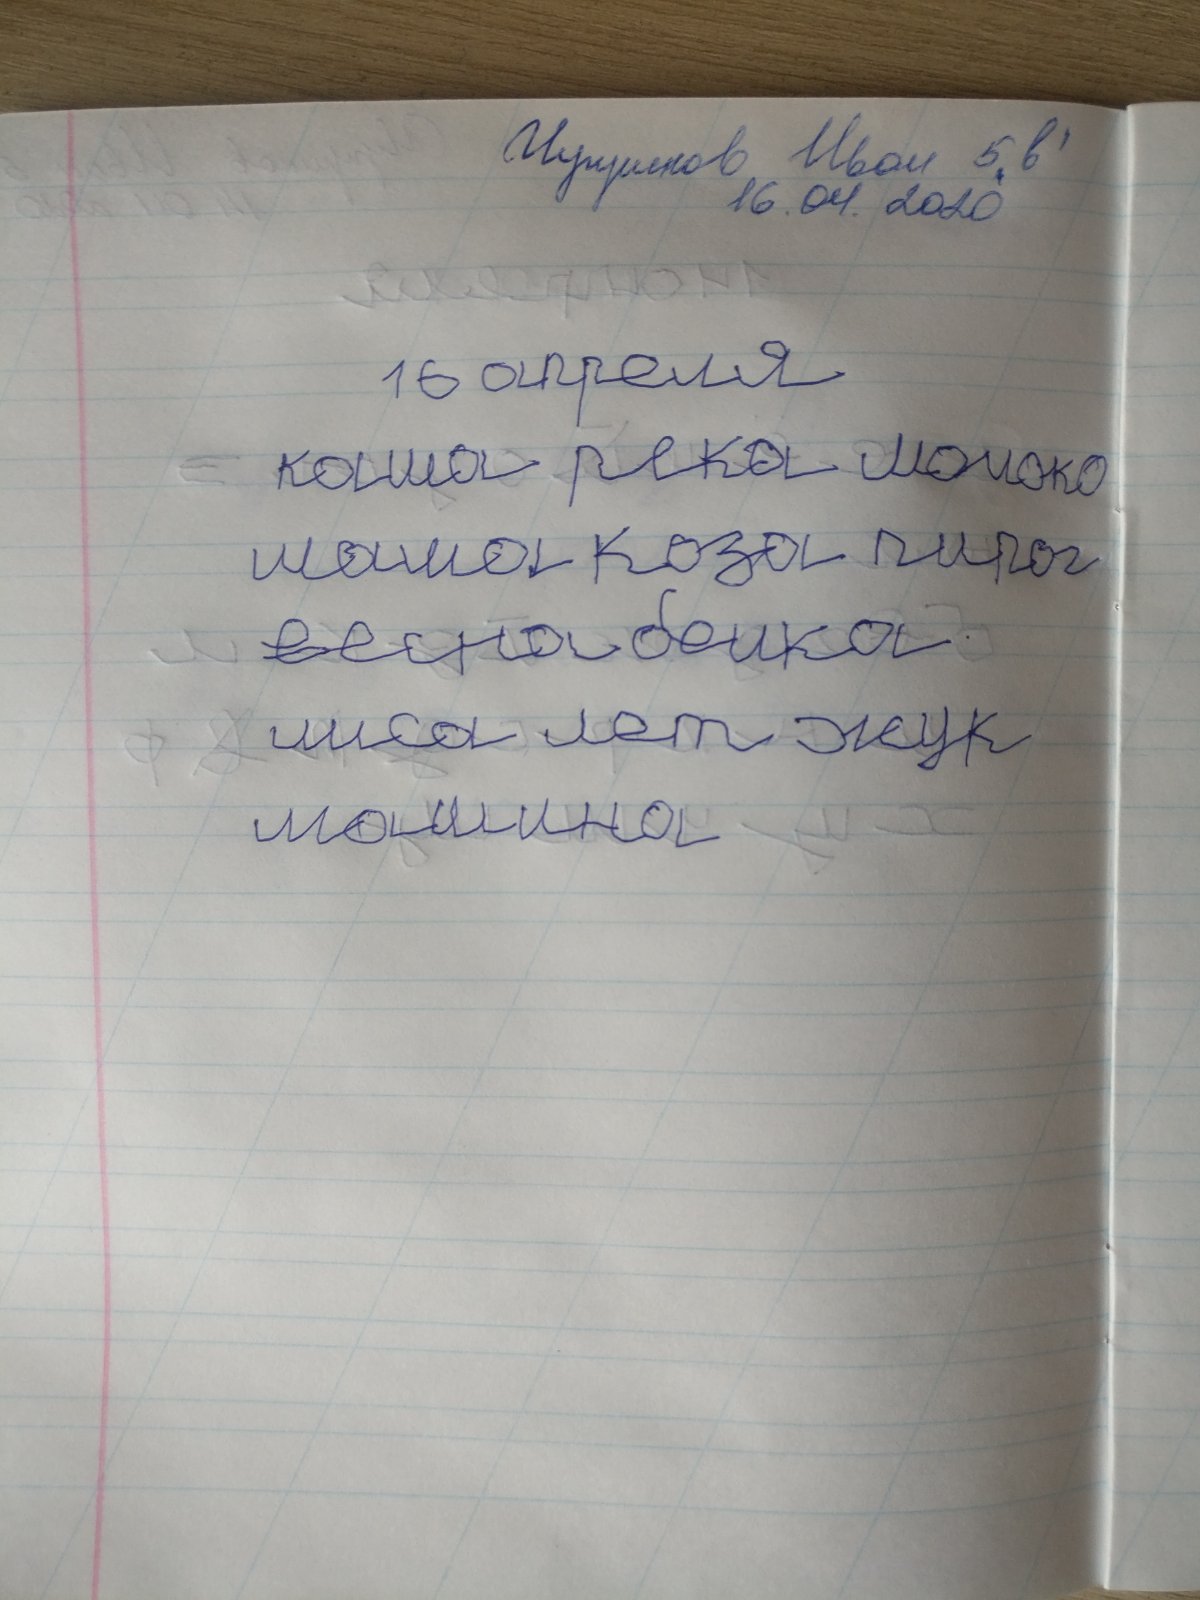 Иван 5 "в"
16.04.2020
16 апреля
каша река молоко
мама коза пирог
весна белка
лиса лет жук
машина